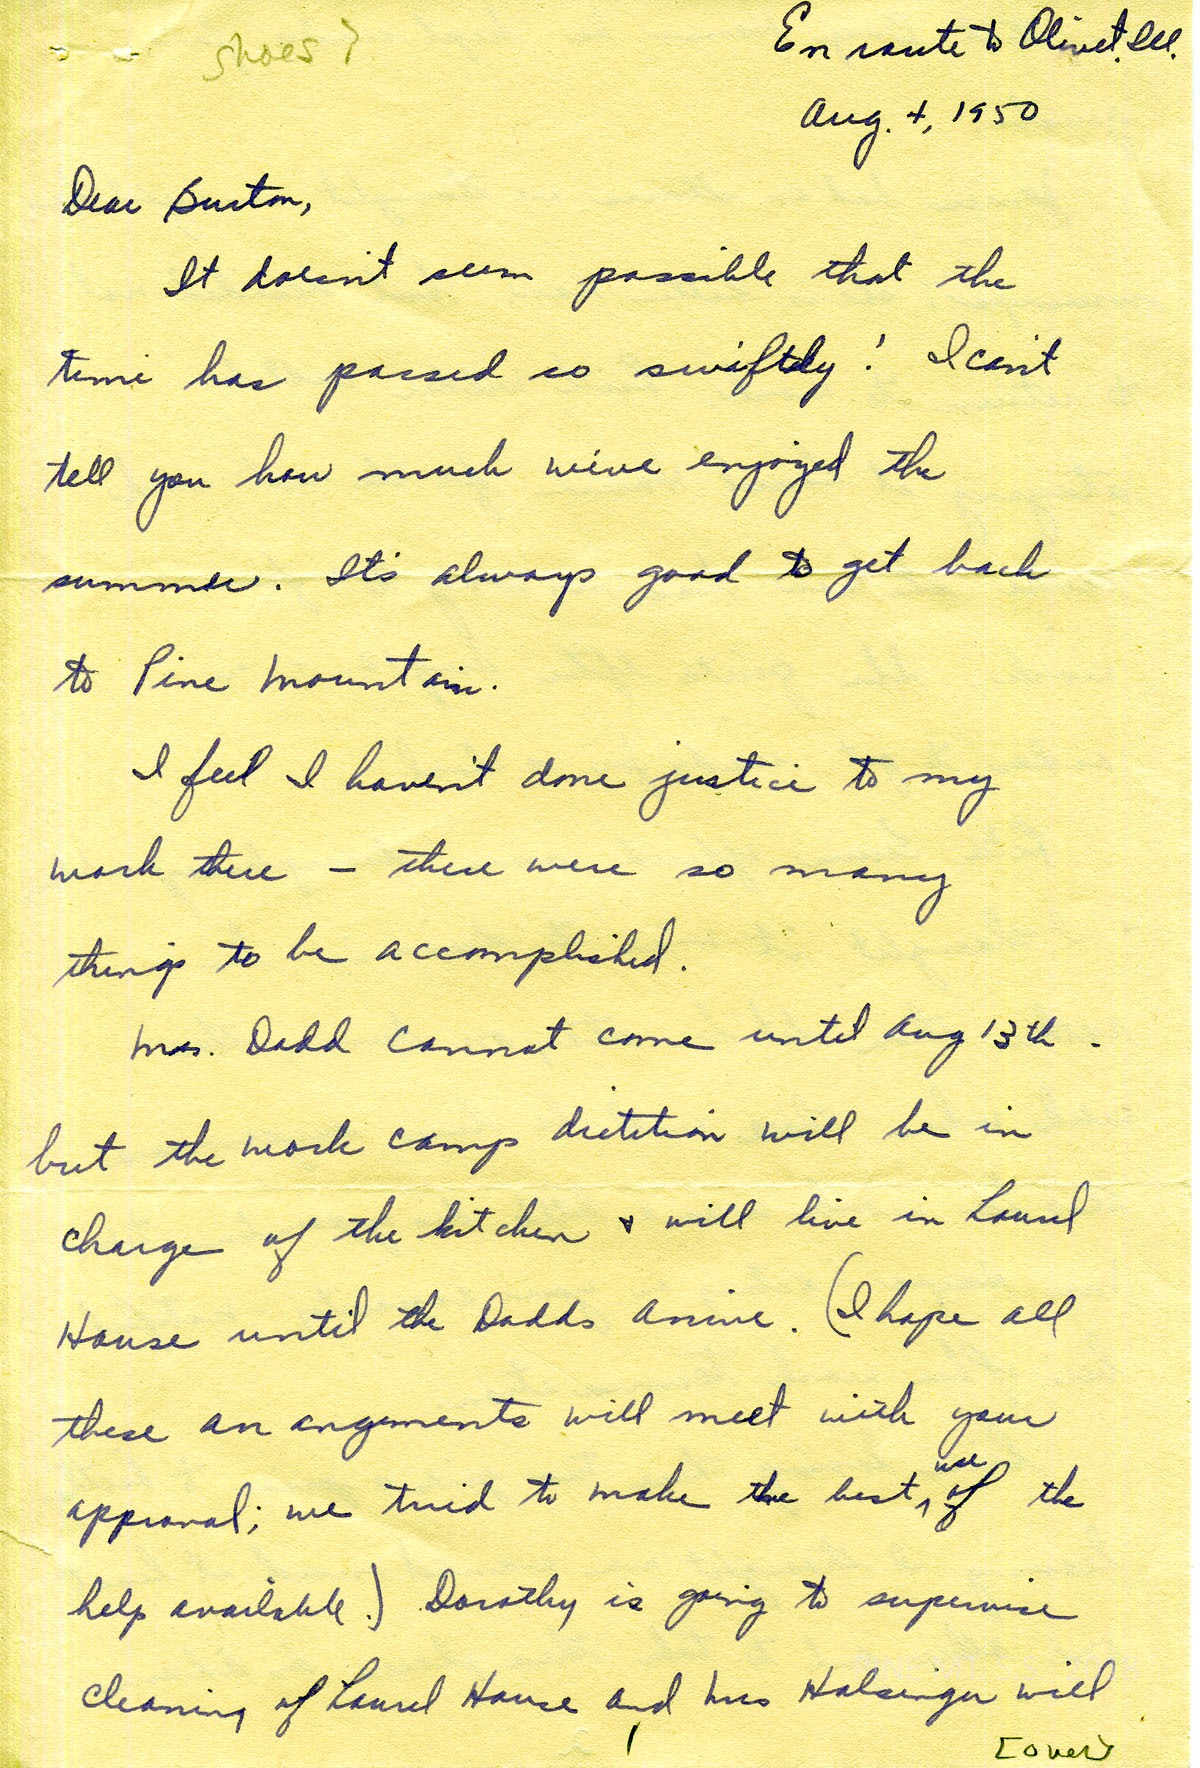 shoes?
En route to Olivet, Ill.
Aug. 4, 1950
Dear Burton,
It doesn't seem possible that the
time has passed so swiftly! I can't
tell you how much we've enjoyed the
summer. It's always good to get back
to Pine Mountain.
I feel I haven't done justice to my
work there – there were so many
things to be accomplished.
Mrs. Dodd cannot come until Aug 13th -
but the work camp dietition will be in
charge of the kitchen & will live in Laurel
House until the Dodds arrive. (I hope all
these arrangements will meet with your
approval; we tried to make the best use of the
help available.) Dorothy is going to supervise
cleaning of Laurel House and Mrs Halsinger will
1
[over]